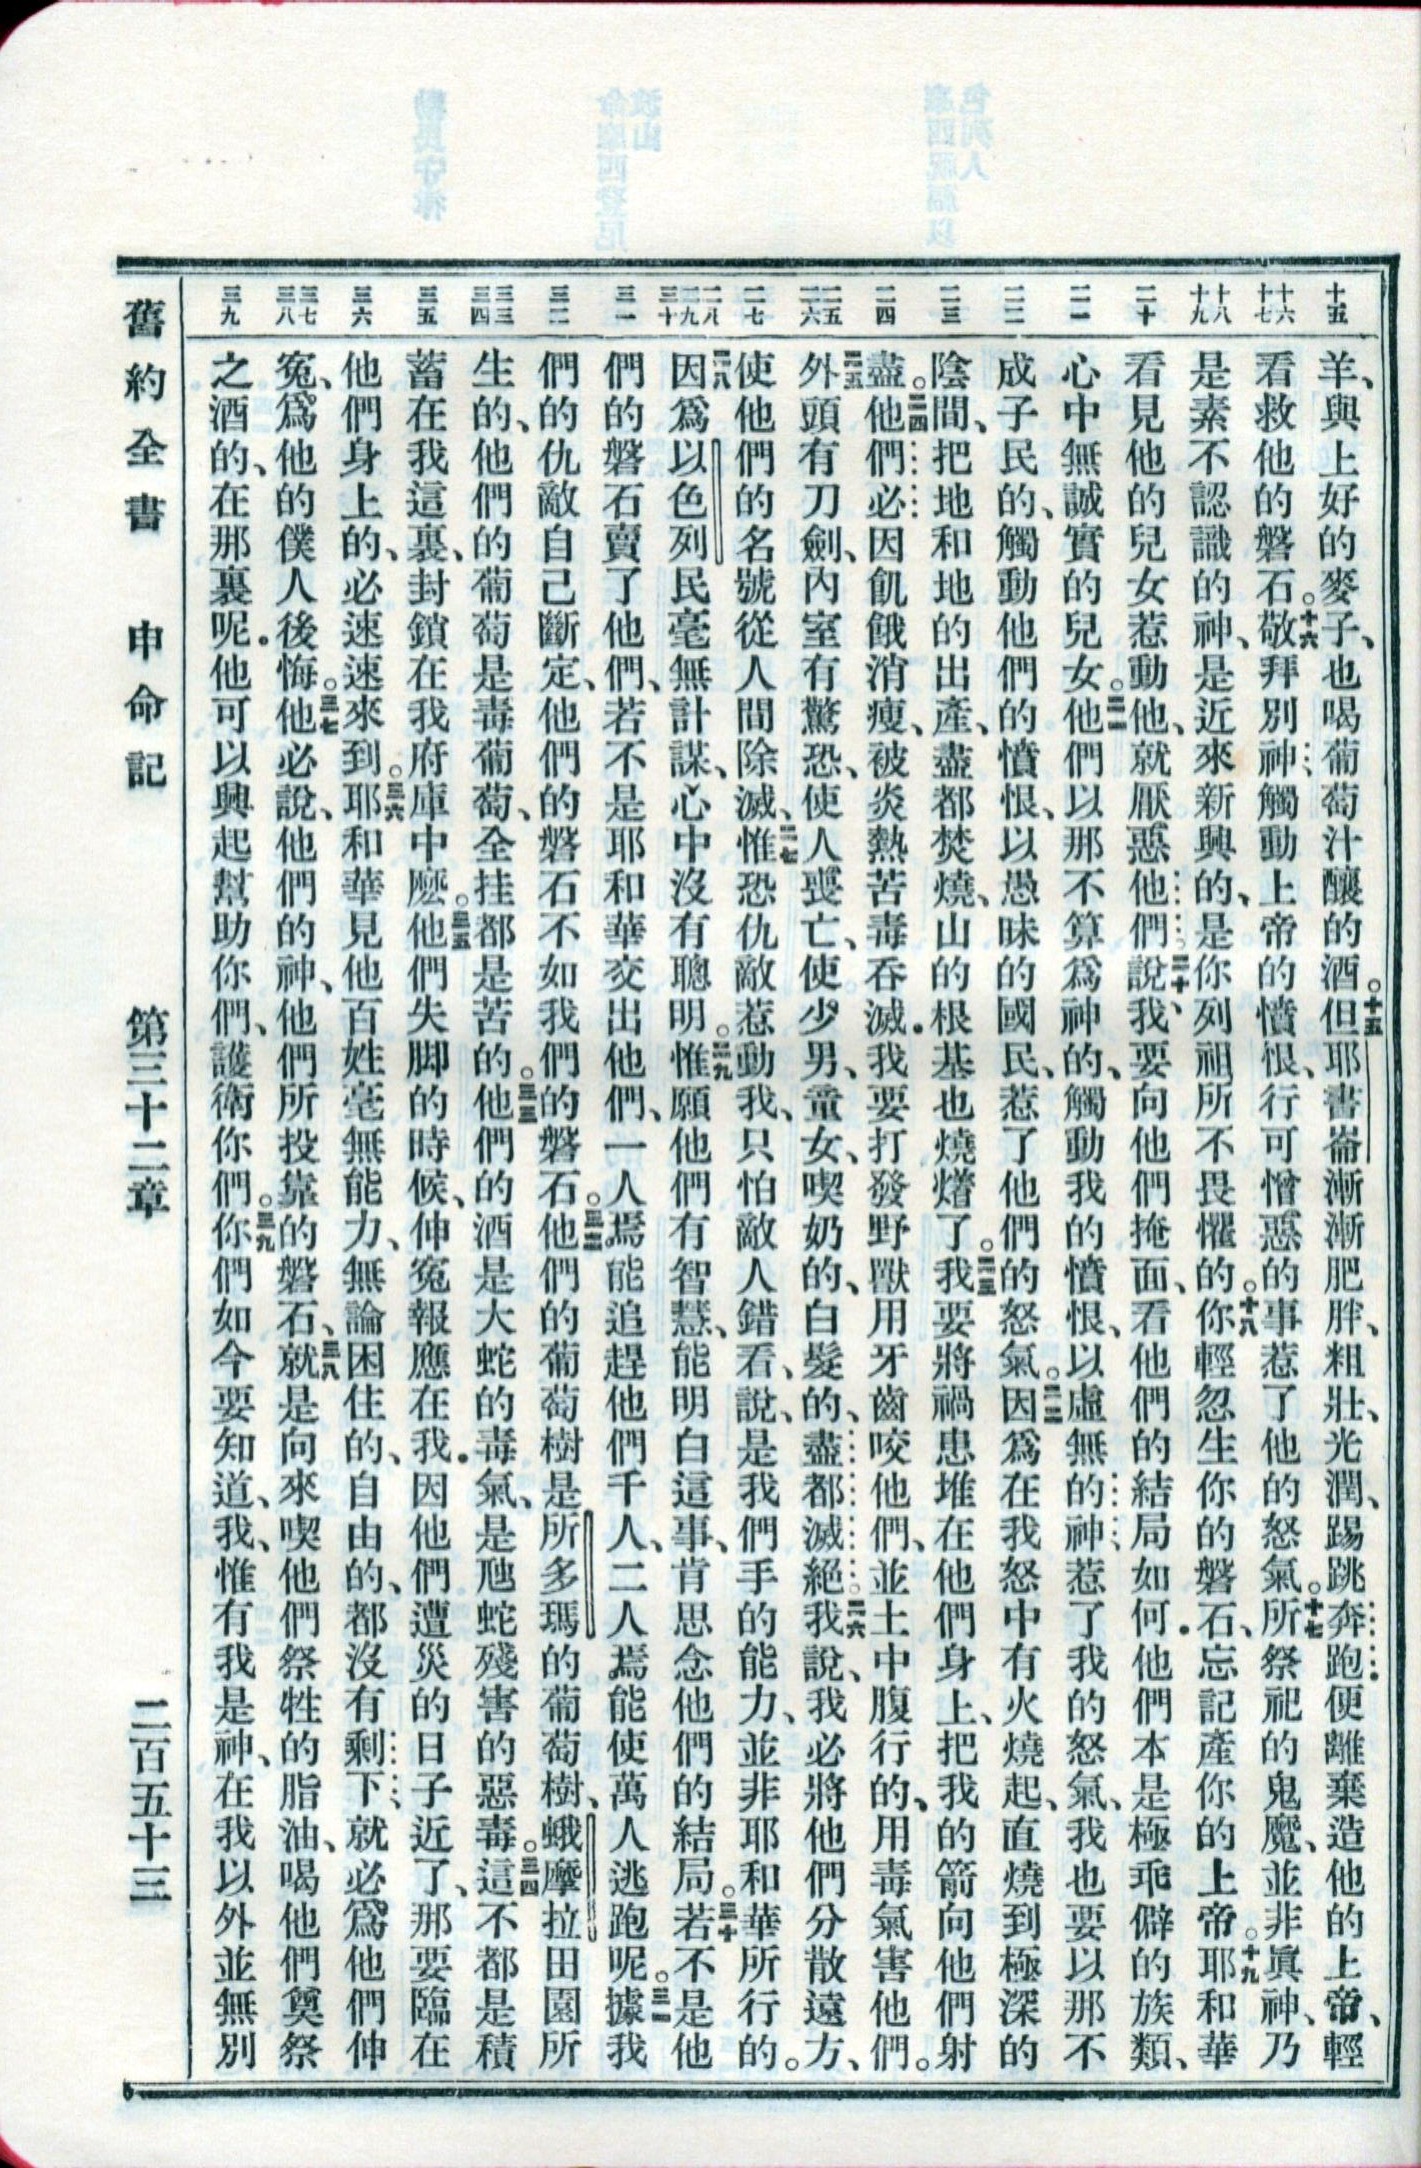 十五
羊、與上好的麥子、也喝葡萄汁釀的酒。十五但耶書崙漸漸肥胖、粗壯、光潤、踢跳奔跑、便離棄造他的上帝、輕
十六 十七
看救他的磐石。十六敬拜別神、觸動上帝的憤恨、行可憎惡的事惹了他的怒氣。十七所祭祀的鬼魔、並非眞神、乃
十八 十九
是素不認識的神、是近來新興的、是你列祖所不畏懼的。十八你輕忽生你的磐石、忘記產你的上帝。十九耶和華
二十
看見他的兒女惹動他、就厭惡他們。二十說、我要向他們掩面、看他們的結局如何.他們本是極乖僻的族類、
二一
心中無誠實的兒女。二一他們以那不算爲神的、觸動我的憤恨、以虛無的神、惹了我的怒氣、我也要以那不
二二
成子民的、觸動他們的憤恨、以愚昧的國民、惹了他們的怒氣。二二因爲在我怒中有火燒起、直燒到極深的
二三
陰間、把地和地的出產、盡都焚燒、山的根基也燒㸅了。二三我要將禍患堆在他們身上、把我的箭向他們射
二四
盡。二四他們必因飢餓消瘦、被炎熱苦毒吞滅.我要打發野獸用牙齒咬他們、並土中腹行的、用毒氣害他們。
二五 二六
二五外頭有刀劍、內室有驚恐、使人喪亡、使少男、童女、喫奶的、白髮的、盡都滅絕。二六我說、我必將他們分散遠方、
二七
使他們的名號從人間除滅、二七惟恐仇敵惹動我、只怕敵人錯看、說、是我們手的能力、並非耶和華所行的。
二八 二九 三十
二八因爲以色列民毫無計謀、心中沒有聰明。二九惟願他們有智慧、能明白這事、肯思念他們的結局。三十若不是他
三一
們的磐石賣了他們、若不是耶和華交出他們、一人焉能追趕他們千人、二人焉能使萬人逃跑呢。三一據我
三二
們的仇敵自己斷定、他們的磐石不如我們的磐石。三二他們的葡萄樹是所多瑪的葡萄樹、蛾摩拉田園所
三三 三四
生的、他們的葡萄是毒葡萄、全挂都是苦的。三三他們的酒是大蛇的毒氣、是虺蛇殘害的惡毒。三四這不都是積
三五
蓄在我這裏、封鎖在我府庫中麽。三五他們失脚的時候、伸冤報應在我.因他們遭災的日子近了、那要臨在
三六
他們身上的、必速速來到。三六耶和華見他百姓毫無能力、無論困住的、自由的、都沒有剩下、就必爲他們伸
三七 三八
冤、爲他的僕人後悔。三七他必說、他們的神、他們所投靠的磐石、三八就是向來喫他們祭牲的脂油、喝他們奠祭
三九
之酒的、在那裏呢.他可以興起幫助你們、護衛你們。三九你們如今要知道、我、惟有我是神、在我以外並無別
舊約全書 申命記 第三十二章 二百五十三